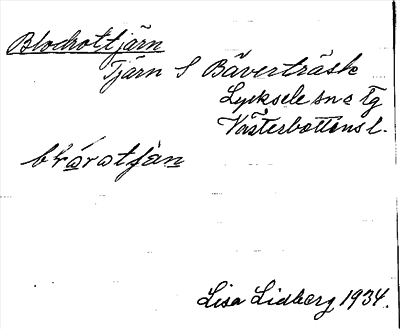 Blodrottjärn
Tjärn S Bäverträsk
Lycksele sn o Tg
Västerbottens l.
Lisa Lidberg 1934.